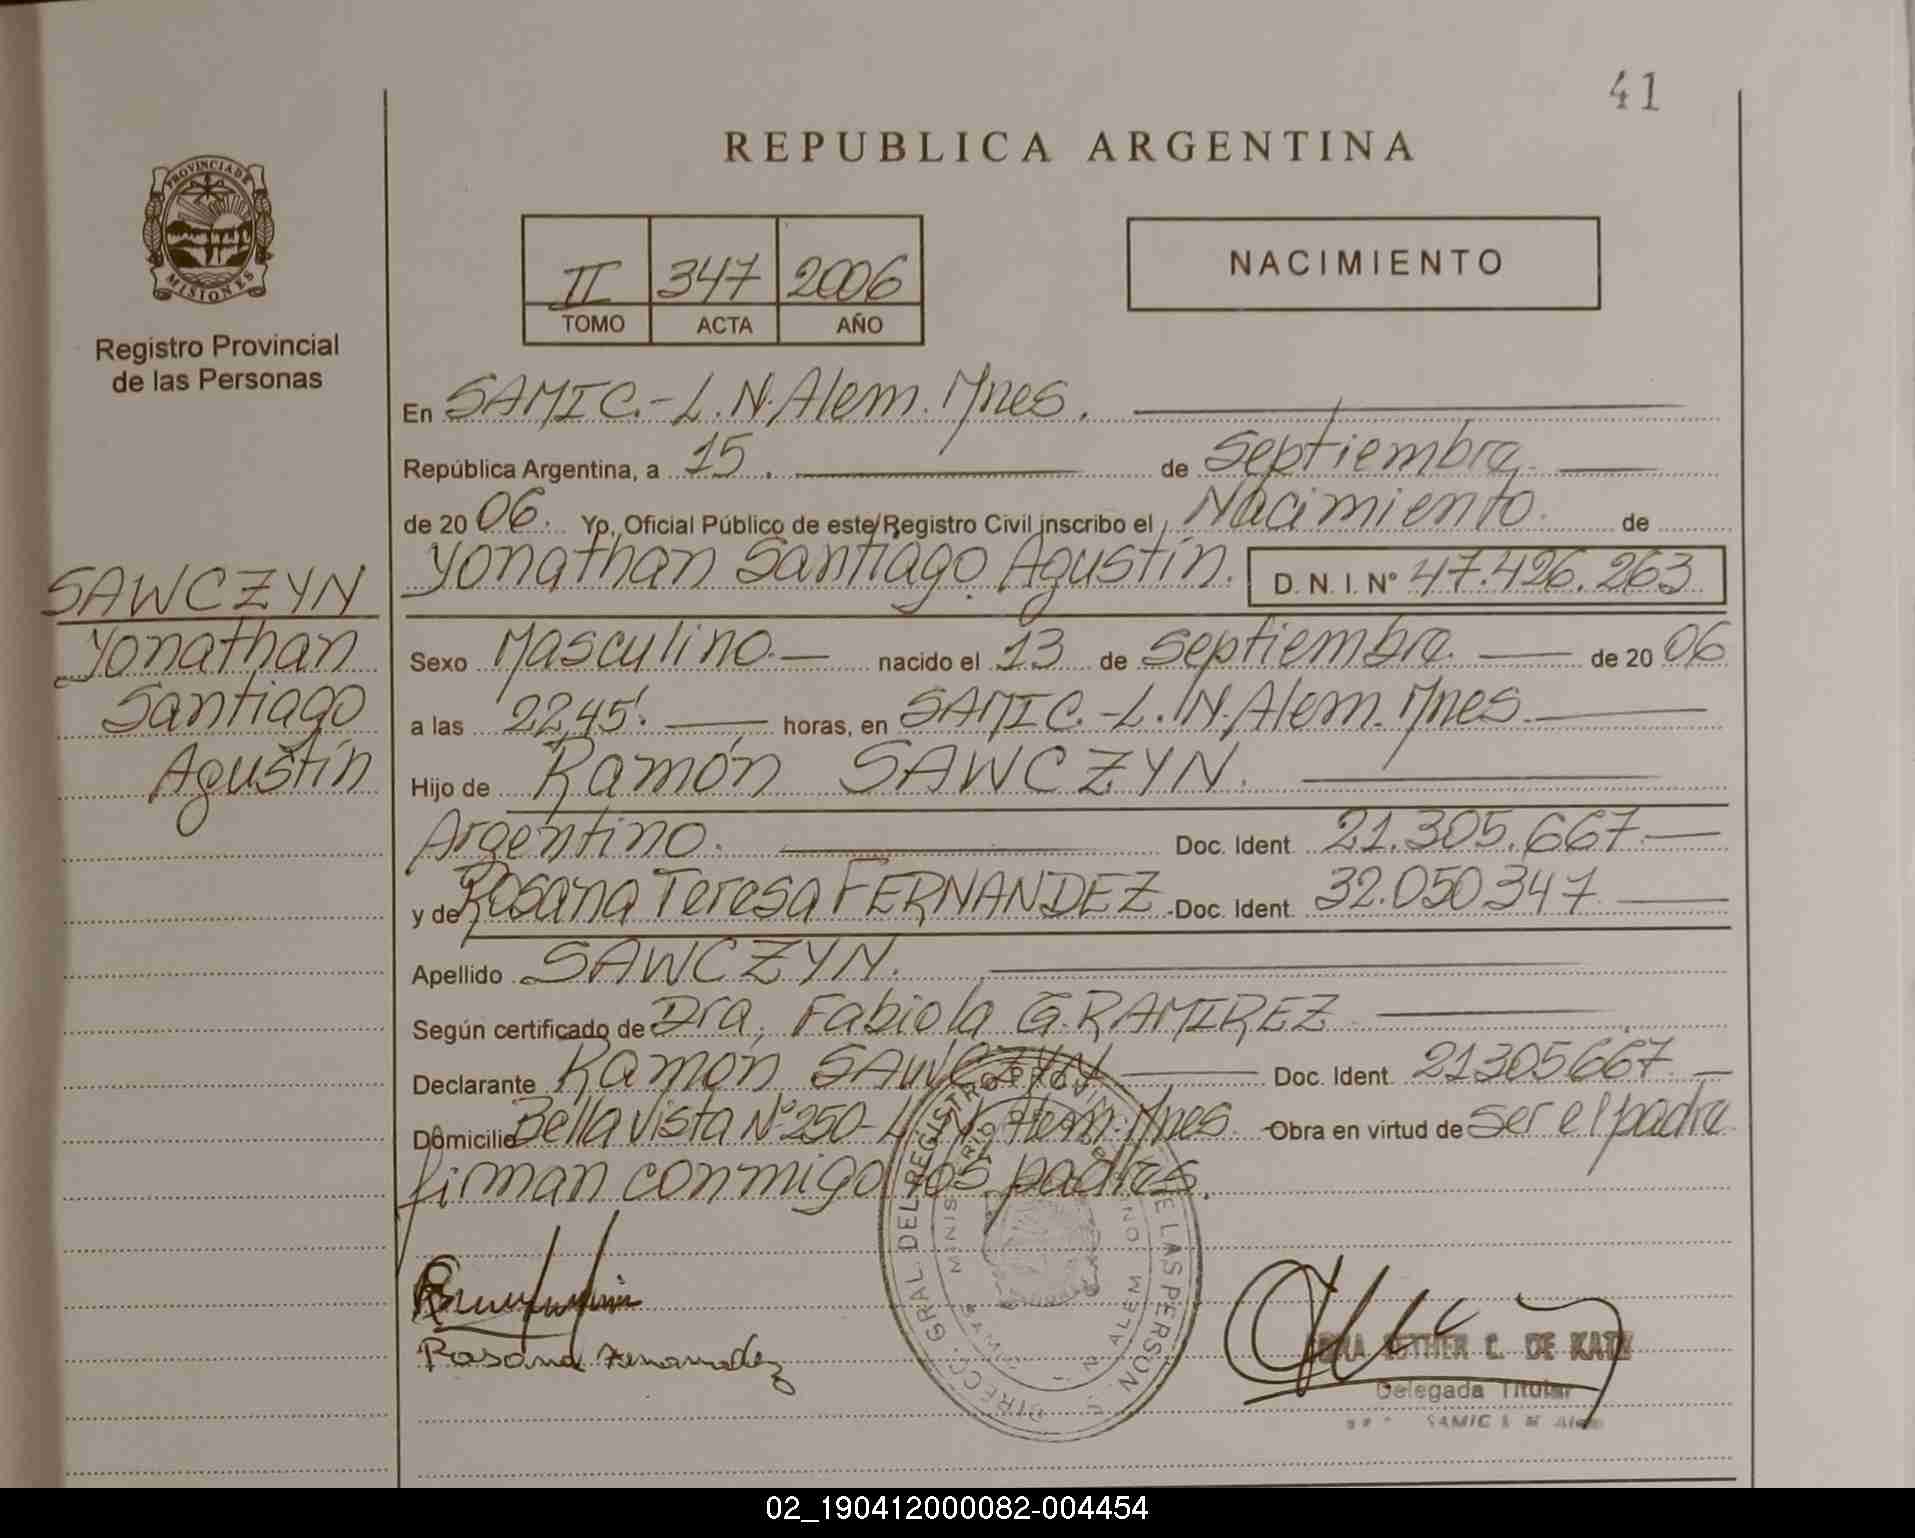 41
REPUBLICA ARGENTINA
PROVINCIA DE
MISIONES
Registro Provincial
de las Personas
II 347 2006
TOMO ACTA AÑO
NACIMIENTO
En SAMIC.-L.N.Alem. Mnes.
República Argentina, a 15. de Septiembre.
de 2006. Yo, Oficial Público de este Registro Civil inscribo el Nacimiento. de
Yonathan Santiago Agustín. D. N. I. Nº 47.426.263
SAWCZYN
Yonathan
Santiago
Agustín
Sexo Masculino.- nacido el 13 de Septiembre. de 2006
a las 22,45'. horas, en SAMIC.-L.N.Alem. Mnes.
Hijo de Ramón SAWCZYN.
Argentino. Doc. Ident. 21.305.667.
y de Rosana Teresa FERNANDEZ.- Doc. Ident. 32.050.347.
Apellido SAWCZYN.
Según certificado de Dra. Fabiola G. RAMIREZ
Declarante Ramón SAWCZYN Doc. Ident. 21305667.
Domicilio Bella Vista Nº 250-L.N.Alem. Mnes. Obra en virtud de ser el padre
firman conmigo los padres.
DIRECC. GRAL. DEL REGISTRO PROVINCIAL DE LAS PERSONAS
Rosana Fernandez
ESTHER C. DE KATZ
Delegada Titular
SAMIC
02_190412000082-004454